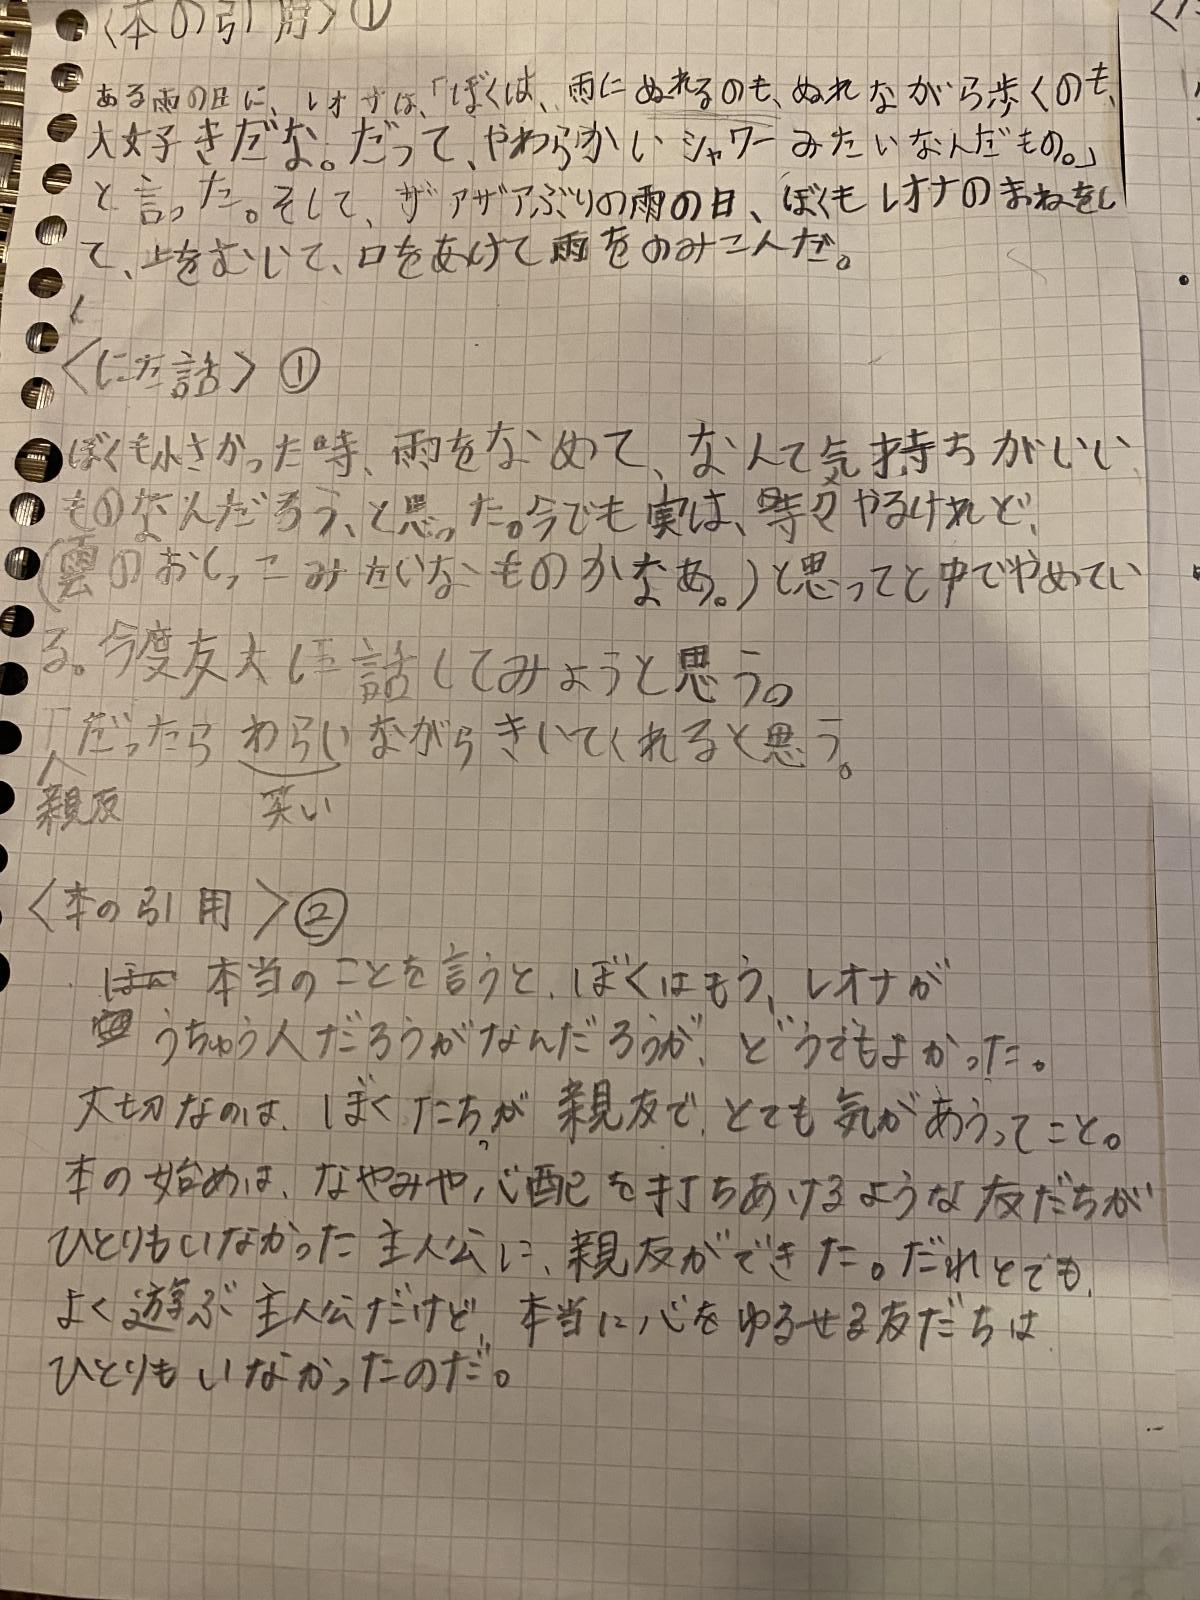 〈本の引用〉①
ある雨の日に、レオナは、「ぼくは、雨にぬれるのも、ぬれながら歩くのも、
大好きだな。だって、やわらかいシャワーみたいなんだもの。」
と言った。そして、ザアザアぶりの雨の日、ぼくもレオナのまねをし
て、上をむいて、口をあけて雨をのみこんだ。
〈にた話〉①
ぼくも小さかった時、雨をなめて、なんて気持ちがいい
ものなんだろう、と思った。今でも実は、時々やるけれど、
(雲のおしっこみたいなものかなあ。)と思ってと中でやめてい
る。今度友大に話してみようと思う。
「だったらわらいながらきいてくれると思う。
親友 笑い
〈本の引用〉②
本当のことを言うと、ぼくはもう、レオナが
うちゅう人だろうがなんだろうが、どうでもよかった。
大切なのは、ぼくたちが親友で、とても気があうってこと。
本の始めは、なやみや心配を打ちあけるような友だちが
ひとりもいなかった主人公に、親友ができた。だれとでも、
よく遊ぶ主人公だけど、本当に心をゆるせる友だちは
ひとりもいなかったのだ。